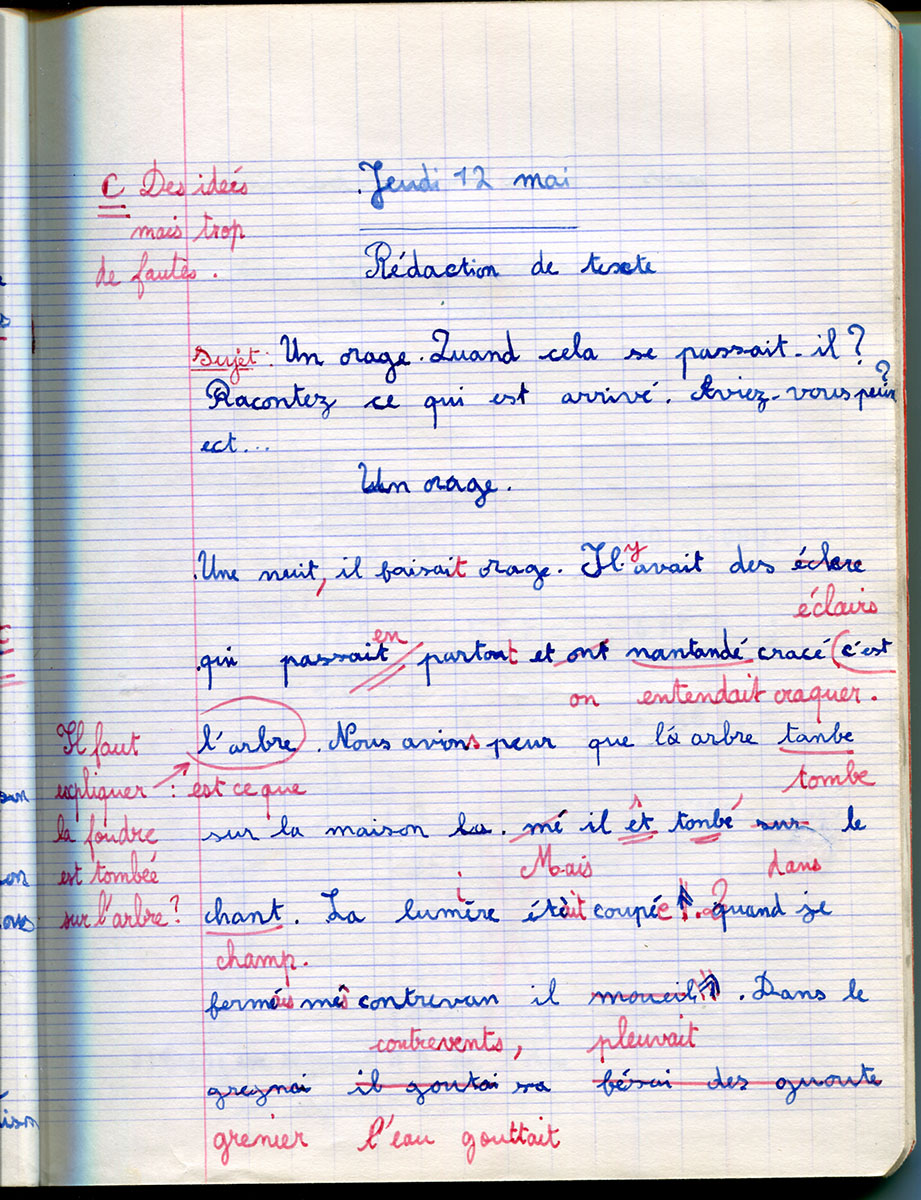 C Des idées
Jeudi 12 mai
mais trop
de fautes.
Rédaction de texcte
Sujet: Un orage. Quand cela se passait-il?
Racontez ce qui est arrivé. Aviez-vous peur?
ect...
Un orage.
Une nuit, il faisait orage. Il y avait des éclere
éclairs
qui passait en partout et ont nantandé cracé (c'est
on entendait craquer.
Il faut
l'arbre. Nous avions peur que là arbre tanbe
expliquer : est ce que
tombe
la foudre
sur la maison la. mé il êt tonbé sur le
est tombée
Mais dans
sur l'arbre?
chant. La lumière était coupée. quand je
champ.
fermais mes contrevan il
contrevents, pleuvait
gregnai il goutai sa bésai des gnoute
grenier l'eau gouttait